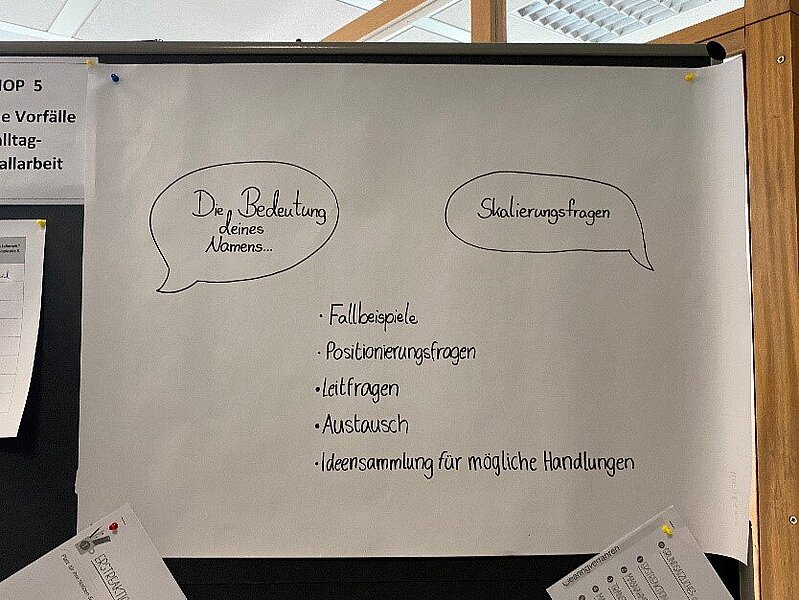 OP 5
e Vorfälle
lltag-
allarbeit
Die Bedeutung
deines
Namens...
Skalierungsfragen
· Fallbeispiele
· Positionierungsfragen
· Leitfragen
· Austausch
· Ideensammlung für mögliche Handlungen
ERSTREAKTIO
Clearingverfahren